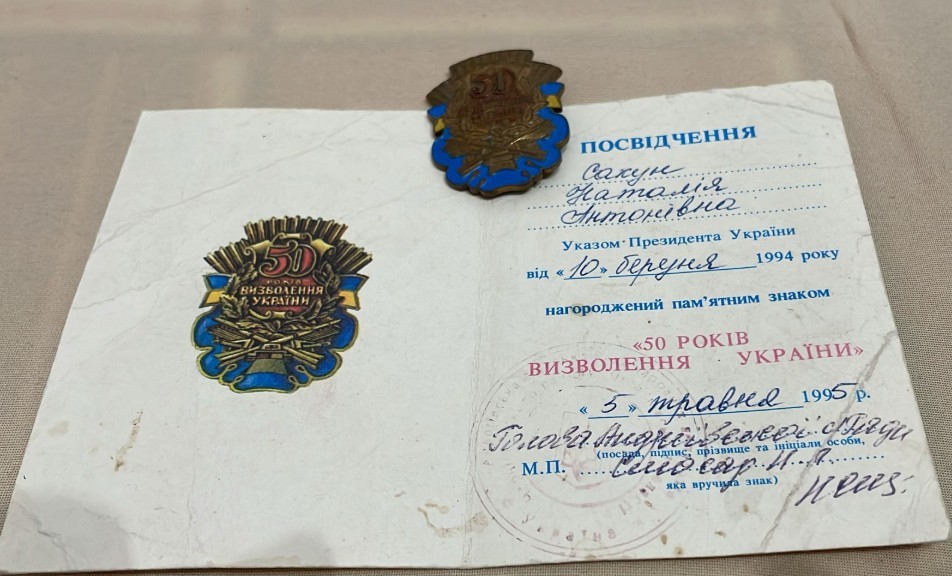 50
50
РОКІВ
ВИЗВОЛЕННЯ
УКРАЇНИ
ПОСВІДЧЕННЯ
Сахун
Наталія
Антонівна
Указом Президента України
від «10» березня 1994 року
нагороджений пам’ятним знаком
«50 РОКІВ
ВИЗВОЛЕННЯ УКРАЇНИ»
«5» травня 1995 р.
Голова Андріївської с/Ради
(посада, підпис, прізвище та ініціали особи,
М.П. Слюсар Н.А.
яка вручила знак)